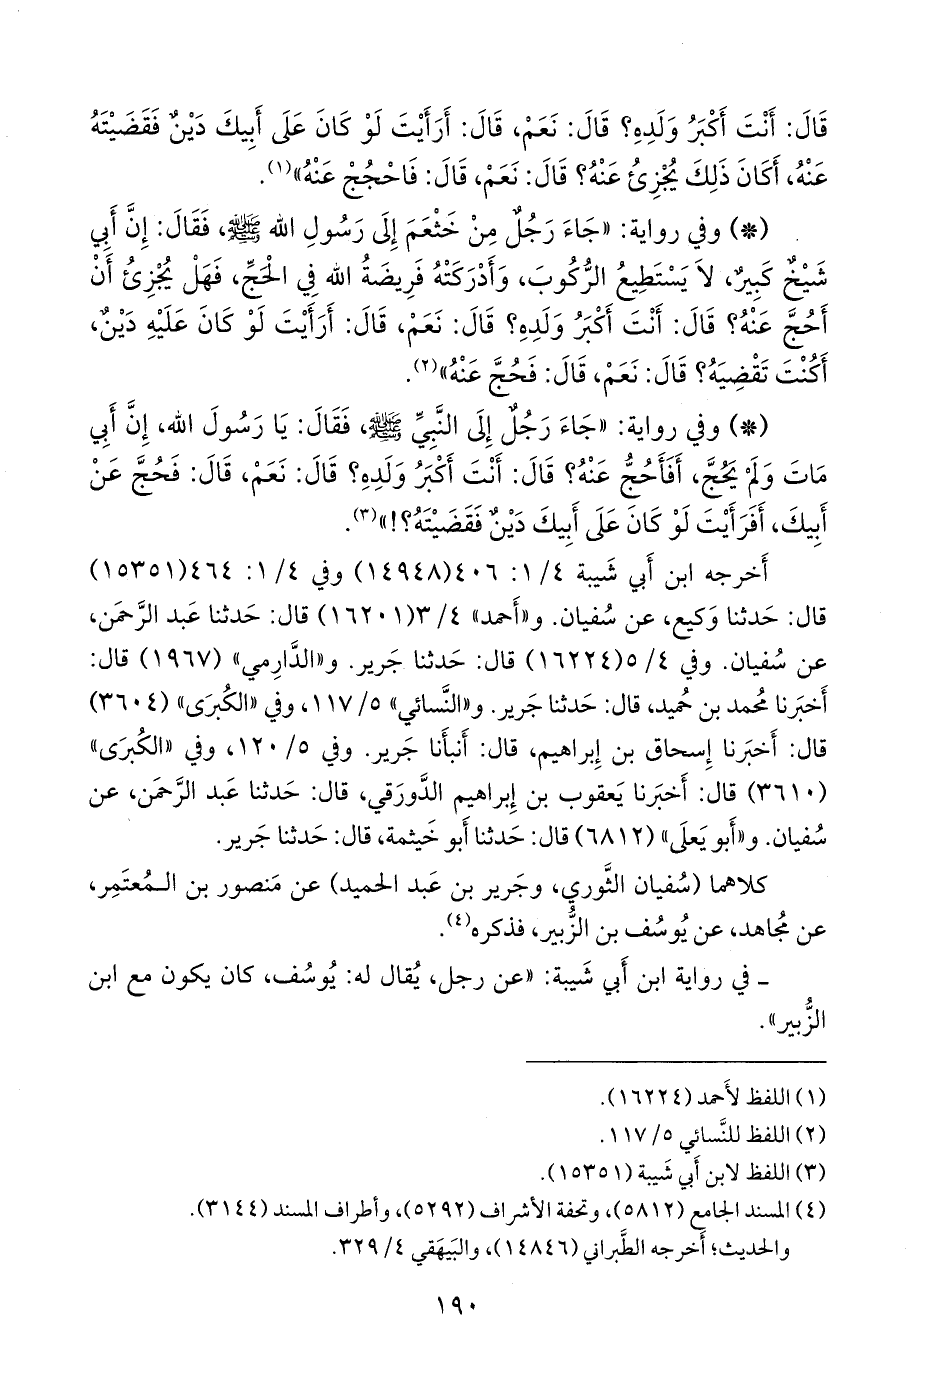 قَالَ: أَنْتَ أَكْبَرُ وَلَدِهِ؟ قَالَ: نَعَمْ، قَالَ: أَرَأَيْتَ لَوْ كَانَ عَلَى أَبِيكَ دَيْنٌ فَقَضَيْتَهُ
عَنْهُ، أَكَانَ ذَلِكَ يُجْزِئُ عَنْهُ؟ قَالَ: نَعَمْ، قَالَ: فَاحْجُجْ عَنْهُ»(١).
(*) وفي رواية: «جَاءَ رَجُلٌ مِنْ خَثْعَمَ إِلَى رَسُولِ الله ﷺ، فَقَالَ: إِنَّ أَبِي
شَيْخٌ كَبِيرٌ، لاَ يَسْتَطِيعُ الرُّكُوبَ، وَأَدْرَكَتْهُ فَرِيضَةُ الله فِي الْحَجِّ، فَهَلْ يُجْزِئُ أَنْ
أَحُجَّ عَنْهُ؟ قَالَ: أَنْتَ أَكْبَرُ وَلَدِهِ؟ قَالَ: نَعَمْ، قَالَ: أَرَأَيْتَ لَوْ كَانَ عَلَيْهِ دَيْنٌ،
أَكُنْتَ تَقْضِيَهُ؟ قَالَ: نَعَمْ، قَالَ: فَحُجَّ عَنْهُ»(٢).
(*) وفي رواية: «جَاءَ رَجُلٌ إِلَى النَّبِيِّ ﷺ، فَقَالَ: يَا رَسُولَ الله، إِنَّ أَبِي
مَاتَ وَلَمْ يَحُجَّ، أَفَأَحُجُّ عَنْهُ؟ قَالَ: أَنْتَ أَكْبَرُ وَلَدِهِ؟ قَالَ: نَعَمْ، قَالَ: فَحُجَّ عَنْ
أَبِيكَ، أَفَرَأَيْتَ لَوْ كَانَ عَلَى أَبِيكَ دَيْنٌ فَقَضَيْتَهُ؟!»(٣).
أَخرجه ابن أَبي شَيبة ٤/ ١: ٤٠٦(١٤٩٤٨) وفي ٤/ ١: ٤٦٤(١٥٣٥١)
قال: حَدثنا وَكيع، عن سُفيان. و«أَحمد» ٤/ ٣(١٦٢٠١) قال: حَدثنا عَبد الرَّحمَن،
عن سُفيان. وفي ٤/ ٥(١٦٢٢٤) قال: حَدثنا جَرير. و«الدَّارِمي» (١٩٦٧) قال:
أَخبَرنا مُحمد بن حُميد، قال: حَدثنا جَرير. و«النَّسائي» ٥/ ١١٧، وفي «الكُبرَى» (٣٦٠٤)
قال: أَخبَرنا إِسحاق بن إِبراهيم، قال: أَنبأَنا جَرير. وفي ٥/ ١٢٠، وفي «الكُبرَى»
(٣٦١٠) قال: أَخبَرنا يَعقوب بن إِبراهيم الدَّورَقي، قال: حَدثنا عَبد الرَّحمَن، عن
سُفيان. و«أَبو يَعلَى» (٦٨١٢) قال: حَدثنا أَبو خَيثمة، قال: حَدثنا جَرير.
كلاهما (سُفيان الثَّوري، وجَرير بن عَبد الحميد) عن مَنصور بن الـمُعتَمِر،
عن مُجاهد، عن يُوسُف بن الزُّبير، فذكره(٤).
ـ في رواية ابن أَبي شَيبة: «عن رجل، يُقال له: يُوسُف، كان يكون مع ابن
الزُّبير».
(١) اللفظ لأَحمد (١٦٢٢٤).
(٢) اللفظ للنَّسائي ٥/ ١١٧.
(٣) اللفظ لابن أَبي شَيبة (١٥٣٥١).
(٤) المسند الجامع (٥٨١٢)، وتحفة الأشراف (٥٢٩٢)، وأطراف المسند (٣١٤٤).
والحديث؛ أَخرجه الطَّبراني (١٤٨٤٦)، والبَيهَقي ٤/ ٣٢٩.
١٩٠